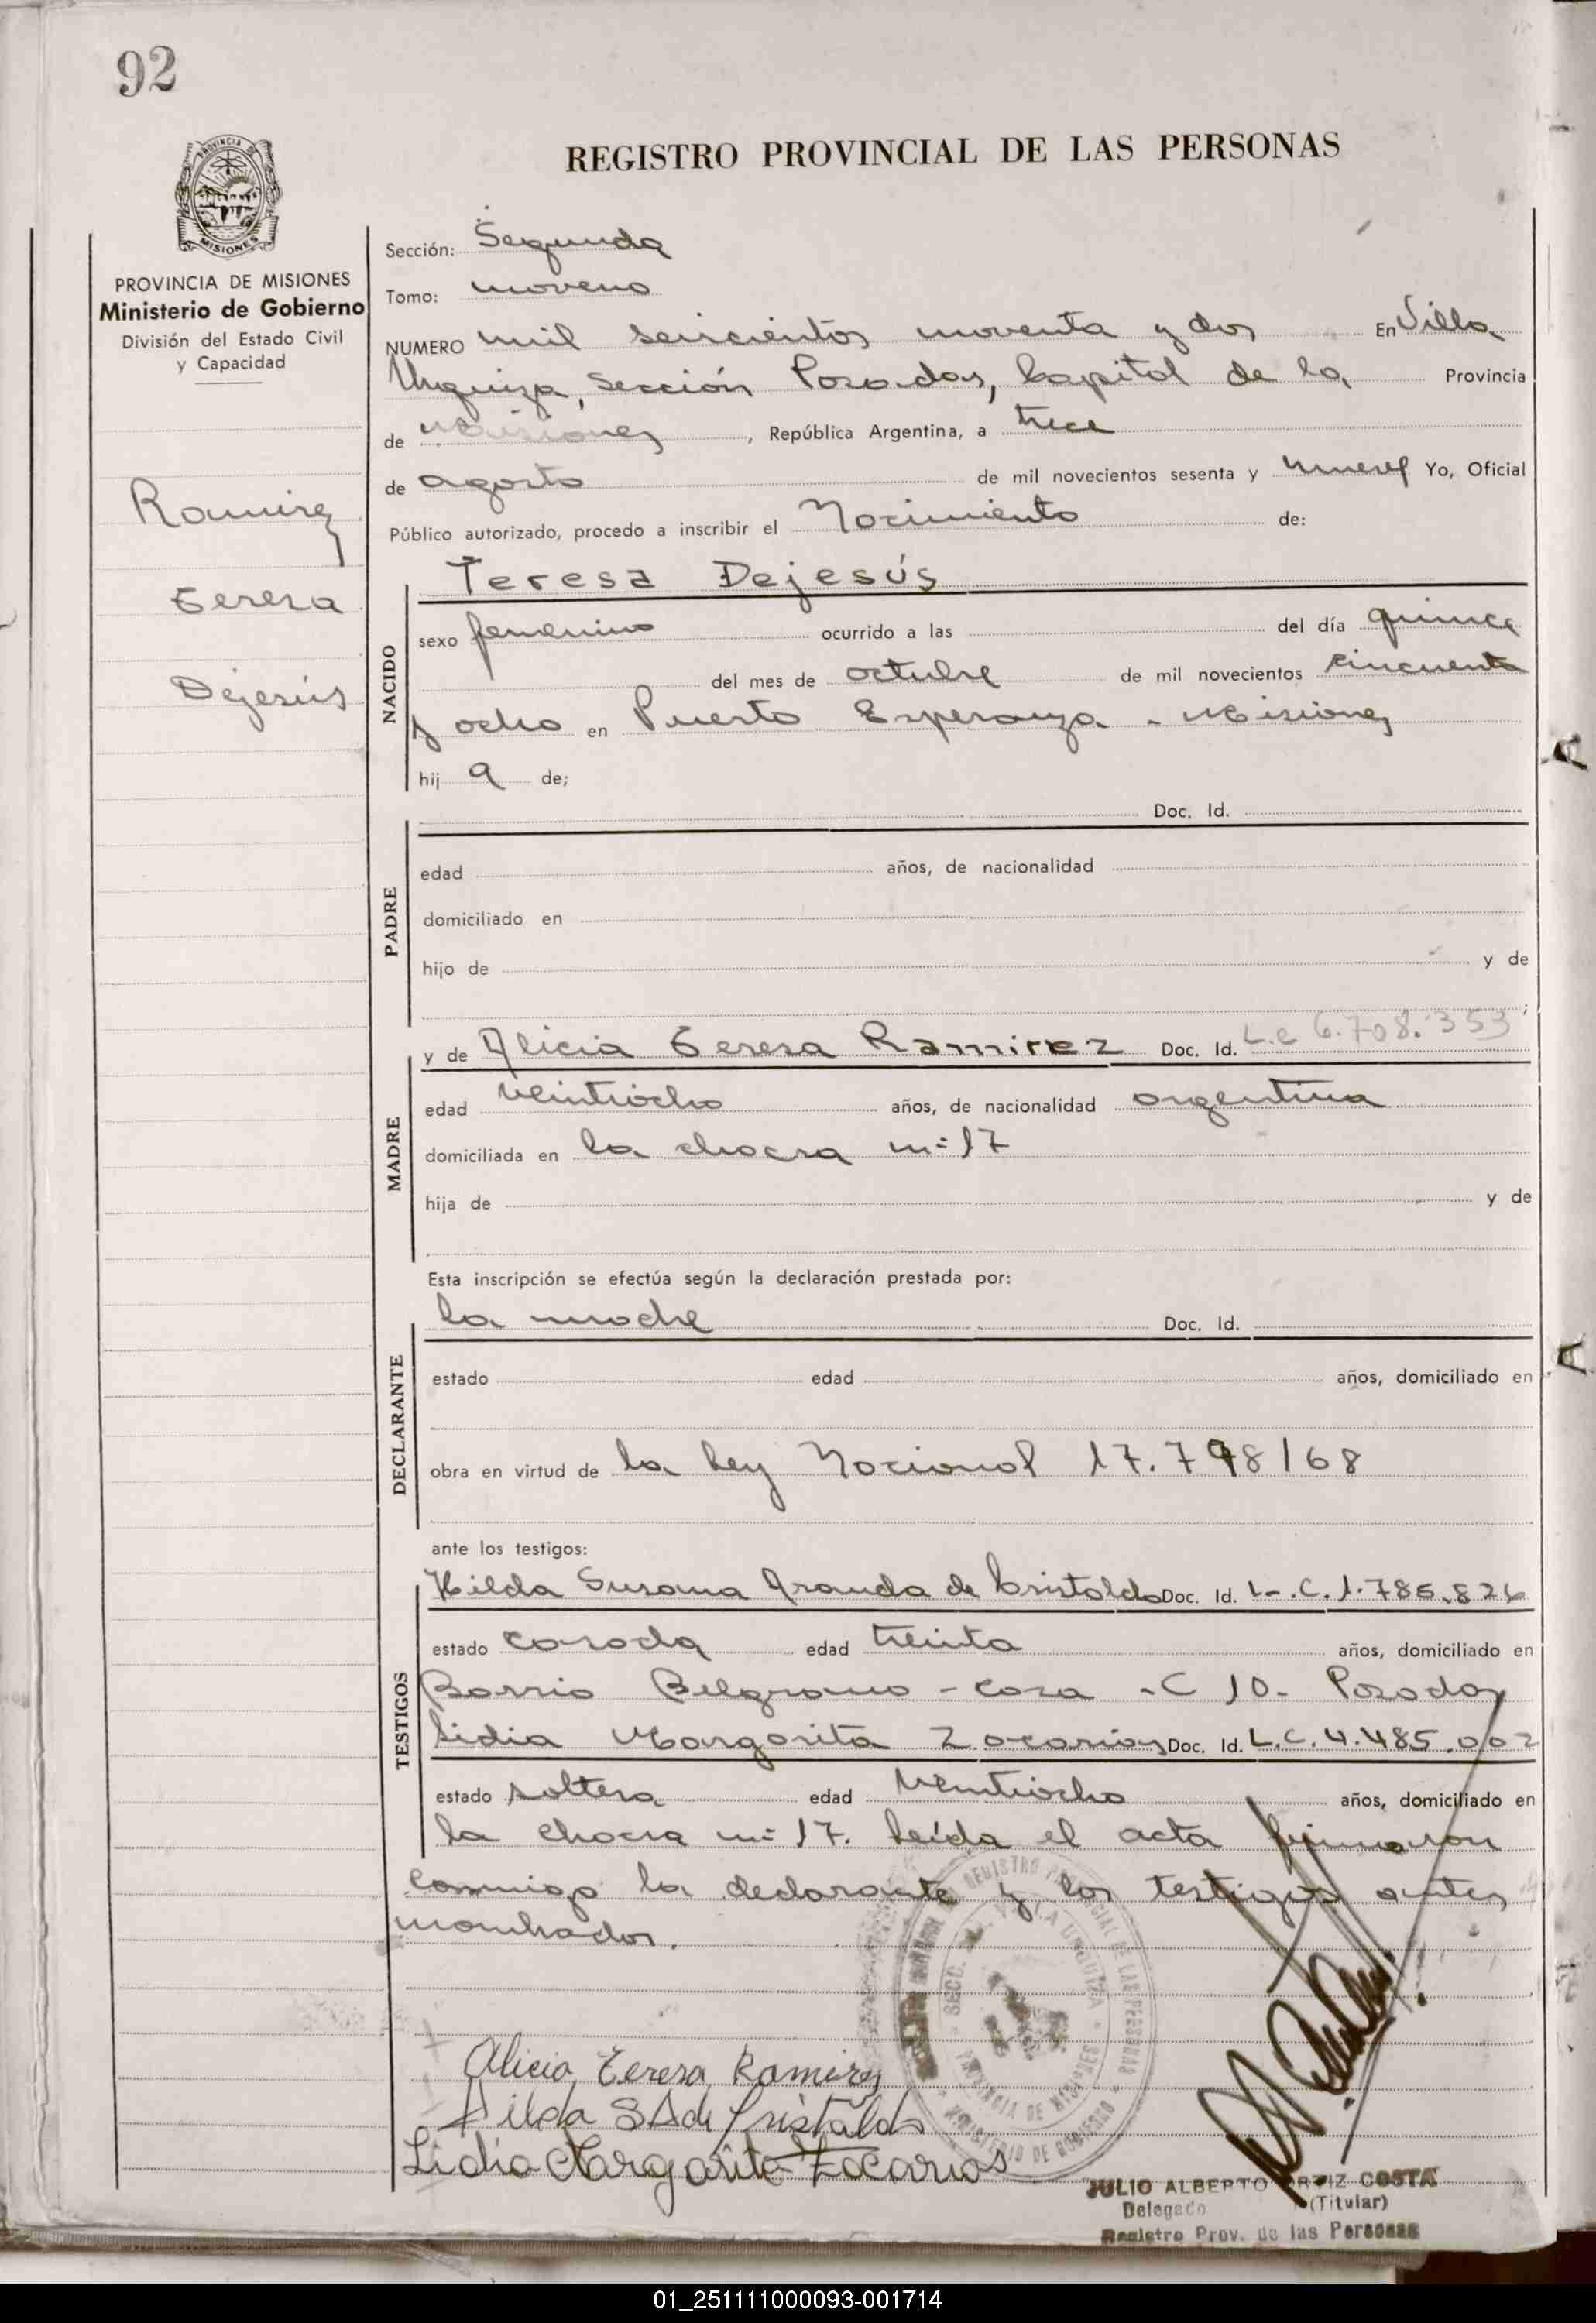 92
REGISTRO PROVINCIAL DE LAS PERSONAS
PROVINCIA DE
MISIONES
PROVINCIA DE MISIONES
Ministerio de Gobierno
División del Estado Civil
y Capacidad
Ramirez
Teresa
Dejesús
Sección: Segunda
Tomo: noveno
NUMERO mil seiscientos noventa y dos En Villa
Urquiza, Sección Posadas, Capital de la Provincia
de Misiones, República Argentina, a trece
de agosto de mil novecientos sesenta y nueve Yo, Oficial
Público autorizado, procedo a inscribir el Nacimiento de:
NACIDO
Teresa Dejesús
sexo femenino ocurrido a las del día quince
del mes de octubre de mil novecientos cincuenta
y ocho en Puerto Esperanza - Misiones
hij a de;
PADRE
Doc. Id.
edad años, de nacionalidad
domiciliado en
hijo de y de
;
MADRE
y de Alicia Teresa Ramirez Doc. Id. L.C 6.708.353
edad veintiocho años, de nacionalidad argentina
domiciliada en la chacra n=17
hija de y de
Esta inscripción se efectúa según la declaración prestada por:
DECLARANTE
la madre Doc. Id.
estado edad años, domiciliado en
obra en virtud de la Ley Nacional 17.798/68
ante los testigos:
TESTIGOS
Hilda Susana Aranda de Cristaldo Doc. Id. L.C. 1.785.826
estado casada edad treinta años, domiciliado en
Barrio Belgrano - casa - C 10 - Posadas
Lidia Margarita Zacarias Doc. Id. L.C. 4.485.002
estado soltera edad veintiocho años, domiciliado en
la chacra n=17. Leída el acta firmaron
conmigo la declarante y los testigos antes
nombrados.
REGISTRO PROVINCIAL DE LAS PERSONAS
SECC. VILLA URQUIZA
PROVINCIA DE MISIONES
MINISTERIO DE GOBIERNO
Alicia Teresa Ramirez
Hilda SA de Cristaldo
Lidia Margarita Zacarias
JULIO ALBERTO ORTIZ COSTA
Delegado (Titular)
Registro Prov. de las Personas
01_251111000093-001714